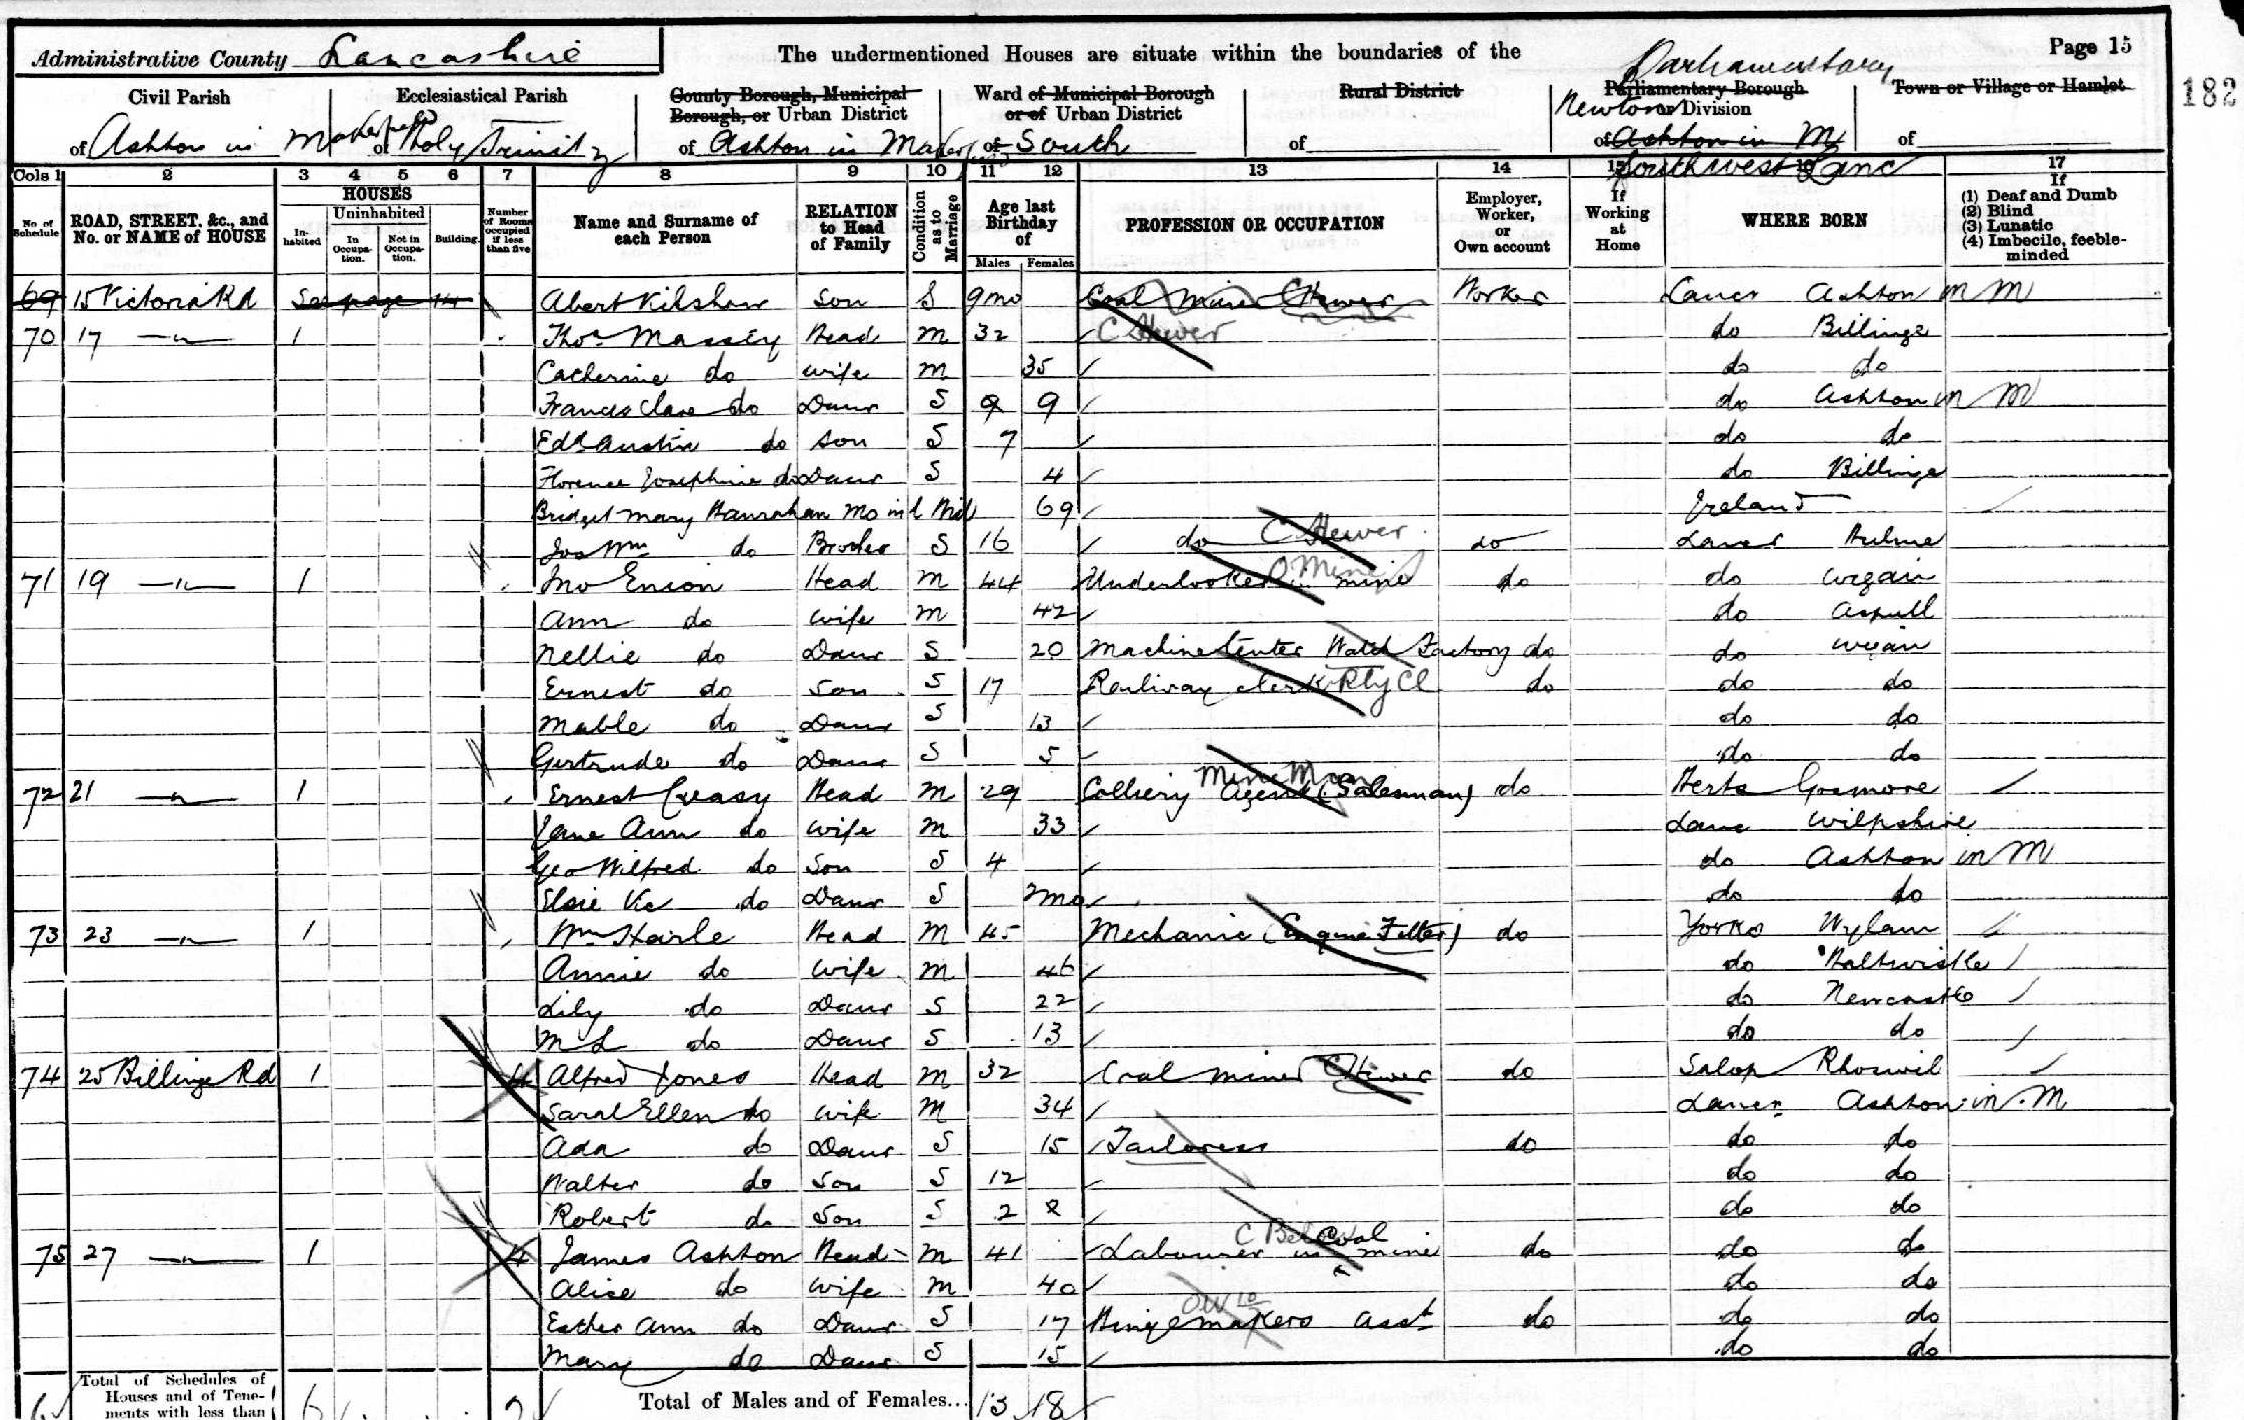 Page 15
182
Administrative County Lancashire
The undermentioned Houses are situate within the boundaries of the
Civil Parish of Ashton in Makerfield
Ecclesiastical Parish of Holy Trinity
County Borough, Municipal Borough, or Urban District of Ashton in Makerfield
Ward of Municipal Borough or of Urban District of South
Rural District of
Parliamentary
Parliamentary Borough or Division of Ashton in M
Newton
Southwest Lanc
Town or Village or Hamlet of
Cols 1 2 3 4 5 6 7 8 9 10 11 12 13 14 15 16 17
No. of Schedule
ROAD, STREET, &c., and No. or NAME of HOUSE
HOUSES
Inhabited
Uninhabited
In Occupation.
Not in Occupation.
Building.
Number of Rooms occupied if less than five
Name and Surname of each Person
RELATION to Head of Family
Condition as to Marriage
Age last Birthday of
Males Females
PROFESSION OR OCCUPATION
Employer, Worker, or Own account
If Working at Home
WHERE BORN
If
(1) Deaf and Dumb
(2) Blind
(3) Lunatic
(4) Imbecile, feeble-minded
69 15 Victoria Rd See page 14 Abert Kilshaw Son S 9mo Coal Miner C Hewer Worker Lancs Ashton in M
70 17 —"— 1 Thos Massey Head M 32 C Hewer do Billinge
Catherine do wife M 35 do do
Francis Clare do Daur S 9 9 do Ashton in M
Edd Austin do son S 7 do do
Florence Josephine do Daur S 4 do Billinge
Bridget Mary Hanrahan Mo in l Wid 69 Ireland
Jos Wm do Brother S 16 do C Hewer do Lancs Hulme
71 19 —"— 1 Jno Enion Head M 44 Underlooker in mine do do Wigan
Ann do wife M 42 do Aspull
Nellie do Daur S 20 Machine tenter Watch Factory do do Wigan
Ernest do Son S 17 Railway clerk Rly Cl do do do
Mable do Daur S 13 do do
Gertrude do Daur S 5 do do
72 21 —"— 1 Ernest Creasy Head M 29 Colliery Agent (Salesman) do Herts Gosmore
Jane Ann do wife M 33 Lanc Wilpshire
Geo Wilfred do Son S 4 do Ashton in M
Elsie Vic do Daur S 2mo do do
73 23 —"— 1 Wm Harle Head M 45 Mechanic (Engine Fitter) do Yorks Wylam
Annie do wife M 46 do Haltwistle
Lily do Daur S 22 do Newcastle
M L do Daur S 13 do do
74 25 Billinge Rd 1 4 Alfred Jones Head M 32 Coal miner C Hewer do Salop Rhoswil
Sarah Ellen do wife M 34 Lancs Ashton in M
Ada do Daur S 15 Tailoress do do do
Walter do Son S 12 do do
Robert do Son S 2 2 do do
75 27 —"— 1 4 James Ashton Head M 41 Labourer in Coal mine do do do
Alice do wife M 40 do do
Esther Ann do Daur S 17 Hinge makers asst do do do
Mary do Daur S 15 do do
Total of Schedules of Houses and of Tenements with less than
6 6 2
Total of Males and of Females... 13 18